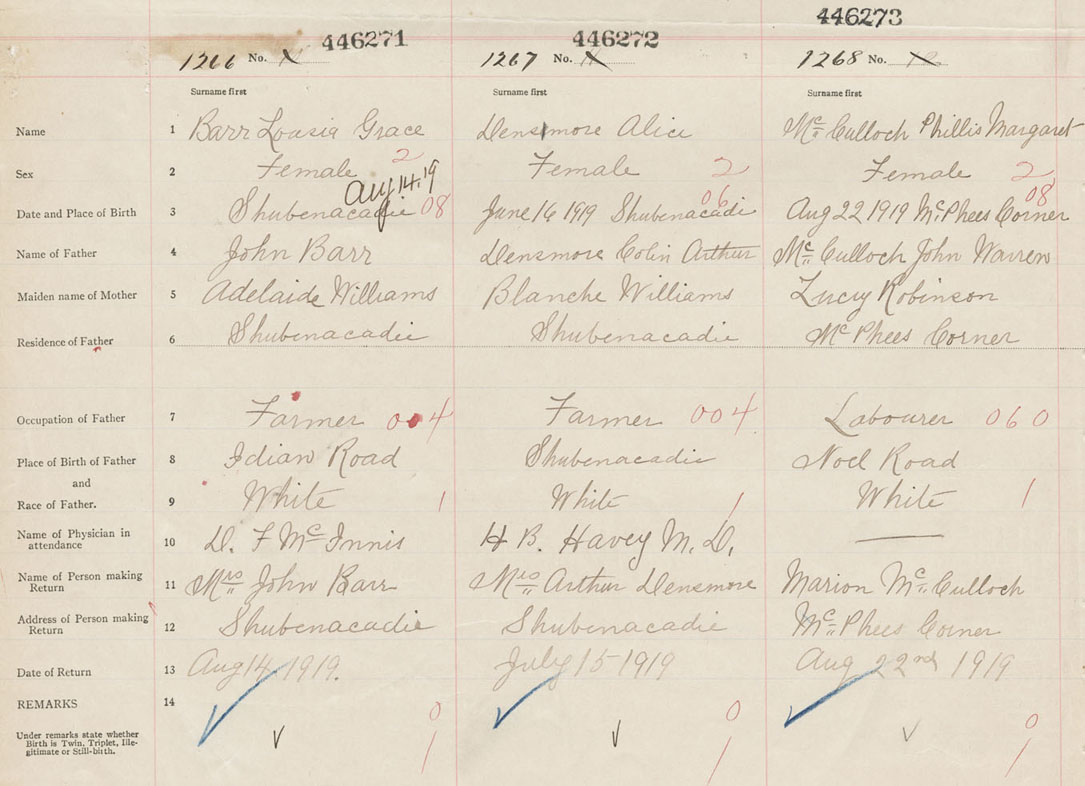 446271 446272 446273
1266 No. 1267 No. 1268 No.
Surname first Surname first Surname first
Name 1 Barr Lousia Grace Densmore Alice McCulloch Phillis Margaret
Sex 2 Female 2 Female 2 Female 2
Aug 14.19
Date and Place of Birth 3 Shubenacadie 08 June 16 1919 Shubenacadi 06 Aug 22 1919 McPhees Corner 08
Name of Father 4 John Barr Densmore Colin Arthur McCulloch John Warren
Maiden name of Mother 5 Adelaide Williams Blanche Williams Lucy Robinson
Residence of Father 6 Shubenacadie Shubenacadie McPhees Corner
Occupation of Father 7 Farmer 004 Farmer 004 Labourer 060
Place of Birth of Father 8 Idian Road Shubenacadie Noel Road
and
Race of Father. 9 White 1 White 1 White 1
Name of Physician in
attendance 10 D. F McInnis H B. Havey M. D. —
Name of Person making
Return 11 Mrs John Barr Mrs Arthur Densmore Marion McCulloch
Address of Person making
Return 12 Shubenacadie Shubenacadie McPhees Corner
Date of Return 13 Aug 14 1919. July 15 1919 Aug 22nd 1919
REMARKS 14 0 0 0
Under remarks state whether
Birth is Twin, Triplet, Ille-
gitimate or Still-birth. 1 1 1